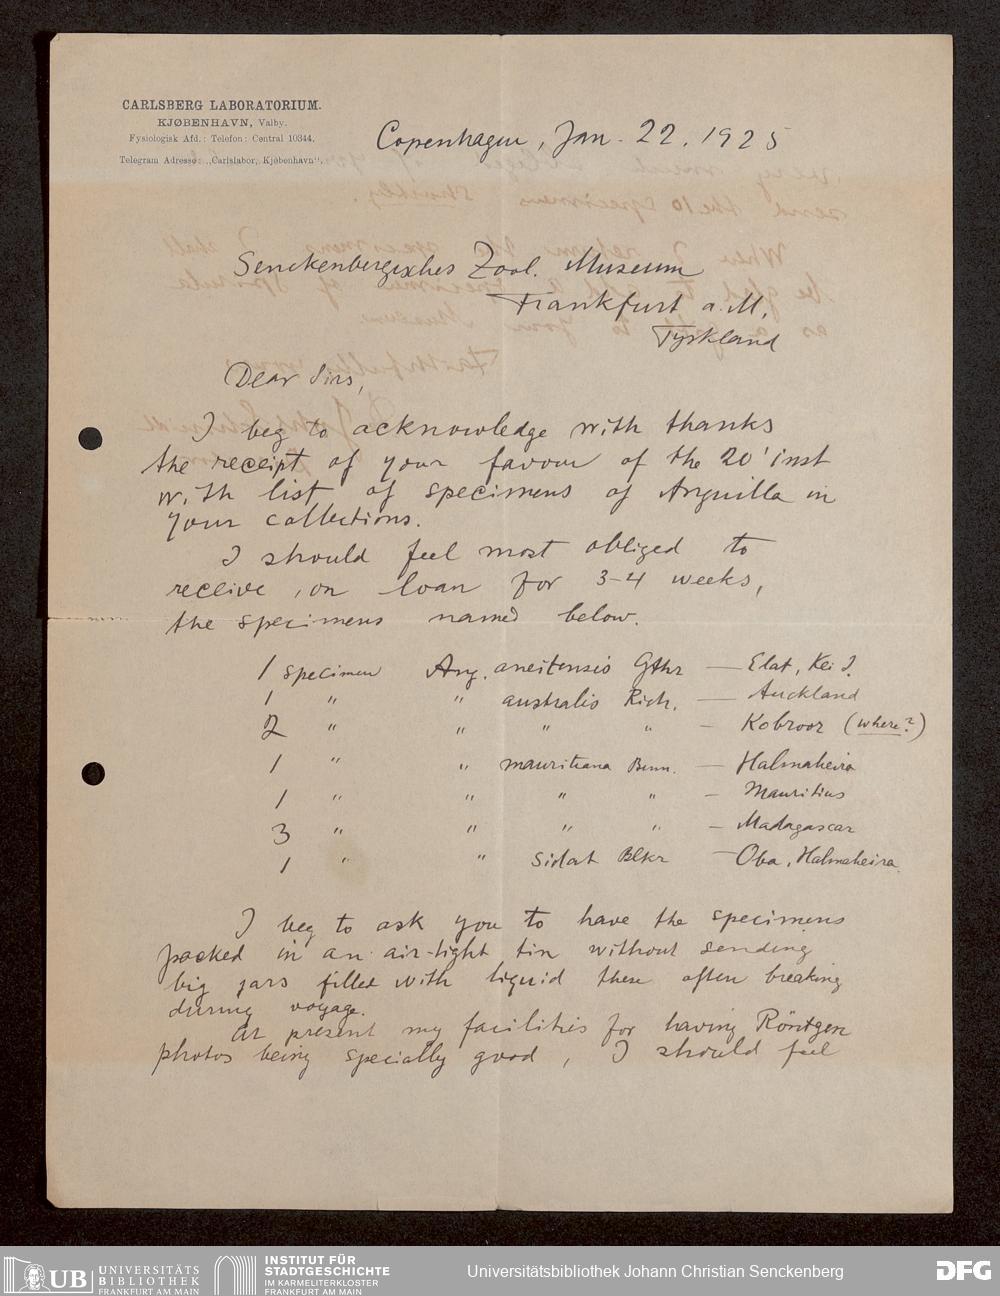 CARLSBERG LABORATORIUM.
KJØBENHAVN, Valby.
Fysiologisk Afd.: Telefon: Central 10344.
Telegram Adresse: „Carlslabor, Kjøbenhavn“.
Copenhagen, Jan. 22. 1925
Senckenbergisches Zool. Museum
Frankfurt a. M.
Tyskland
Dear Sirs,
I beg to acknowledge with thanks
the receipt of your favour of the 20' inst
with list of specimens of Anguilla in
your collections.
I should feel most obliged to
receive, on loan for 3-4 weeks,
the specimens named below.
1 specimen Ang. aneitensis Gthr — Elat, Kei I.
1 " " australis Rich. — Auckland
2 " " " " — Kobroor (where?)
1 " " mauritiana Benn. — Halmaheira
1 " " " " — Mauritius
3 " " " " — Madagascar
1 " " sidat Blkr — Oba, Halmaheira.
I beg to ask you to have the specimens
packed in an air-tight tin without sending
big jars filled with liquid these often breaking
during voyage.
At present my facilities for having Röntgen
photos being specially good, I should feel
UB UNIVERSITÄTS
BIBLIOTHEK
FRANKFURT AM MAIN
INSTITUT FÜR
STADTGESCHICHTE
IM KARMELITERKLOSTER
FRANKFURT AM MAIN
Universitätsbibliothek Johann Christian Senckenberg
DFG